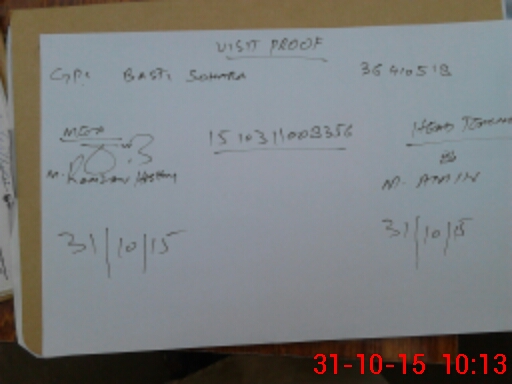 VISIT PROOF
GPS BASTI SOHARA 36410518
MEA 1510311008356 HEAD
M. Ramzan M. AMIN
31/10/15 31/10/15
31-10-15 10:13